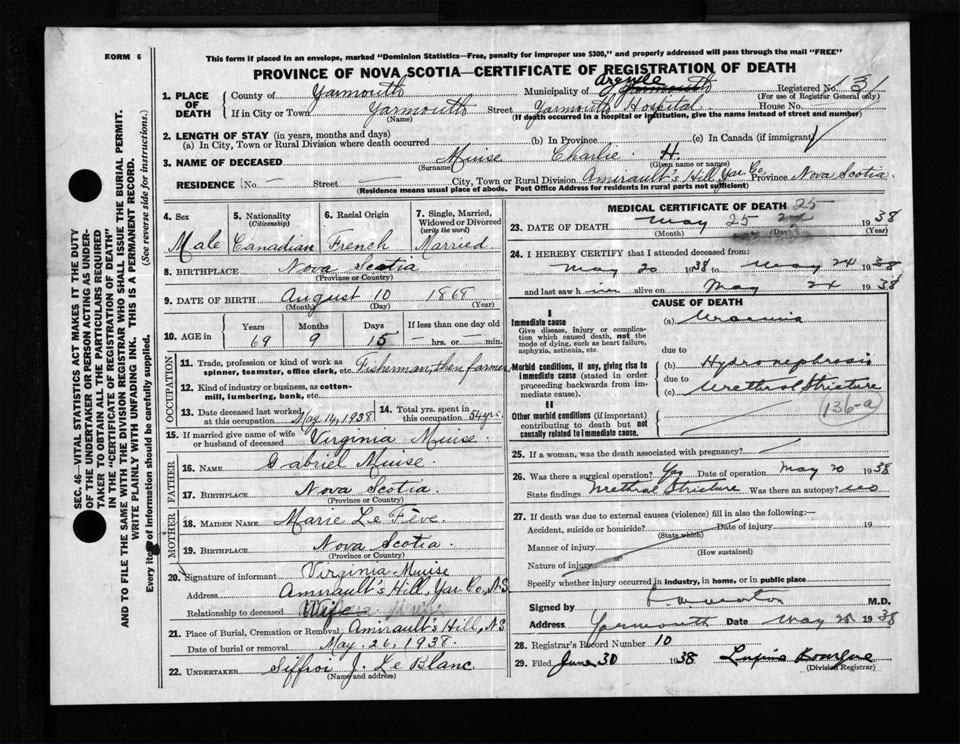 FORM 6
This form if placed in an envelope, marked "Dominion Statistics—Free, penalty for improper use $300," and properly addressed will pass through the mail "FREE"
PROVINCE OF NOVA SCOTIA—CERTIFICATE OF REGISTRATION OF DEATH
SEC. 46—VITAL STATISTICS ACT MAKES IT THE DUTY
OF THE UNDERTAKER OR PERSON ACTING AS UNDER-
TAKER TO OBTAIN ALL THE PARTICULARS REQUIRED
IN THE "CERTIFICATE OF REGISTRATION OF DEATH"
AND TO FILE THE SAME WITH THE DIVISION REGISTRAR WHO SHALL ISSUE THE BURIAL PERMIT.
WRITE PLAINLY WITH UNFADING INK. THIS IS A PERMANENT RECORD.
Every item of information should be carefully supplied. (See reverse side for instructions.)
1. PLACE OF DEATH
County of Yarmouth Municipality of Yarmouth Registered No. 31
(For use of Registrar General only)
If in City or Town Yarmouth Street Yarmouth Hospital House No.
(Name) (If death occurred in a hospital or institution, give the name instead of street and number)
2. LENGTH OF STAY (in years, months and days)
(a) In City, Town or Rural Division where death occurred (b) In Province (c) In Canada (if immigrant)
3. NAME OF DECEASED Muise Charlie H.
(Surname) (Given name or names)
RESIDENCE No. — Street — City, Town or Rural Division Amirault's Hill Yar Co. Province Nova Scotia.
(Residence means usual place of abode. Post Office Address for residents in rural parts not sufficient)
4. Sex 5. Nationality (Citizenship) 6. Racial Origin 7. Single, Married, Widowed or Divorced (write the word)
Male Canadian French Married
8. BIRTHPLACE Nova Scotia
(Province or Country)
9. DATE OF BIRTH August 10 1868
(Month) (Day) (Year)
10. AGE in Years Months Days If less than one day old
69 9 15 — hrs. or — min.
OCCUPATION
11. Trade, profession or kind of work as spinner, teamster, office clerk, etc. Fisherman, then farmer
12. Kind of industry or business, as cotton-mill, lumbering, bank, etc.
13. Date deceased last worked at this occupation May 14, 1938 14. Total yrs. spent in this occupation 54 yrs.
15. If married give name of wife or husband of deceased Virginia Muise.
FATHER
16. NAME Gabriel Muise.
17. BIRTHPLACE Nova Scotia.
(Province or Country)
MOTHER
18. MAIDEN NAME Marie Le Fève.
19. BIRTHPLACE Nova Scotia.
(Province or Country)
20. Signature of informant Virginia Muise
Address Amirault's Hill, Yar. Co., N.S.
Relationship to deceased Wife
21. Place of Burial, Cremation or Removal Amirault's Hill, N.S
Date of burial or removal May 26, 1938.
22. UNDERTAKER Siffroi J. Le Blanc
(Name and address)
MEDICAL CERTIFICATE OF DEATH 25
23. DATE OF DEATH May 25 1938
(Month) (Day) (Year)
24. I HEREBY CERTIFY that I attended deceased from:
May 20 1938 to May 24 1938
and last saw him alive on May 24 1938
CAUSE OF DEATH
I
Immediate cause (a) Uraemia
Give disease, injury or complication which caused death, not the mode of dying, such as heart failure, asphyxia, asthenia, etc.
due to
Morbid conditions, if any, giving rise to immediate cause (stated in order proceeding backwards from immediate) (b) Hydronephrosis
due to
(c) Urethral Stricture
136-a
II
Other morbid conditions (if important) contributing to death but not causally related to immediate cause.
25. If a woman, was the death associated with pregnancy?
26. Was there a surgical operation? Yes Date of operation May 20 1938
State findings Urethral Stricture Was there an autopsy? no
27. If death was due to external causes (violence) fill in also the following:—
Accident, suicide or homicide? Date of injury 19
(State which)
Manner of injury
(How sustained)
Nature of injury
Specify whether injury occurred in industry, in home, or in public place
Signed by M.D.
Address Yarmouth Date May 25 1938
28. Registrar's Record Number 10
29. Filed June 30 1938
(Division Registrar)